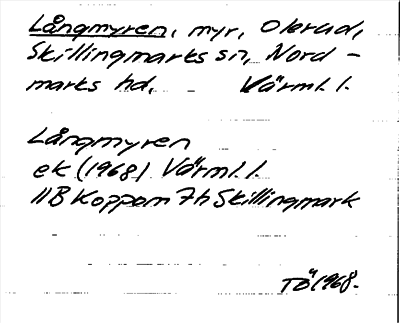 Långmyren, myr, Olerud,
Skillingmarks sn, Nord-
marks hd, Värml. l.
Långmyren
ek (1968) Värml. l.
11B Koppom 7h Skillingmark
TÖ 1968.